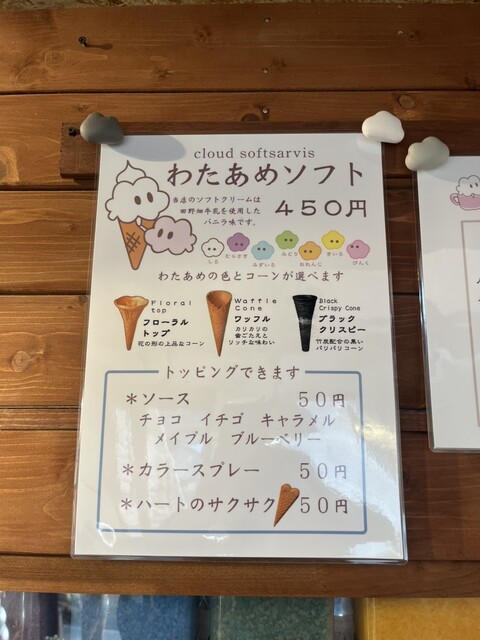 cloud softsarvis
わたあめソフト
当店のソフトクリームは
田野畑牛乳を使用した
バニラ味です。
450円
しろ むらさき みずいろ みどり おれんじ きいろ ぴんく
わたあめの色とコーンが選べます
Floral
top
フローラル
トップ
花の形の上品なコーン
Waffle
Cone
ワッフル
カリカリの
歯ごたえと
リッチな味わい
Black
Crispy Cone
ブラック
クリスピー
竹炭配合の黒い
パリパリコーン
トッピングできます
*ソース 50円
チョコ イチゴ キャラメル
メイプル ブルーベリー
*カラースプレー 50円
*ハートのサクサク 50円